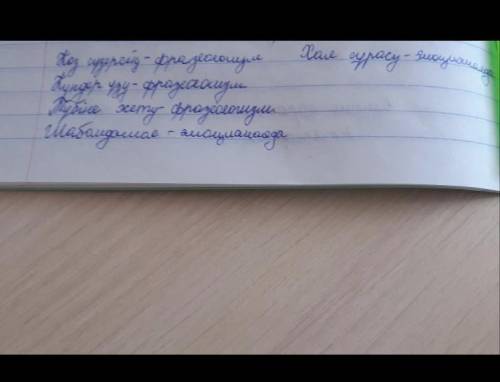 Көз сүрпейд - фразеологизм Хал сұрасу - эмоцианалды
Күндер үзу - фразеологизм
Түбіне жету - фразеологизм
Шабаландамас - эмоцианалды